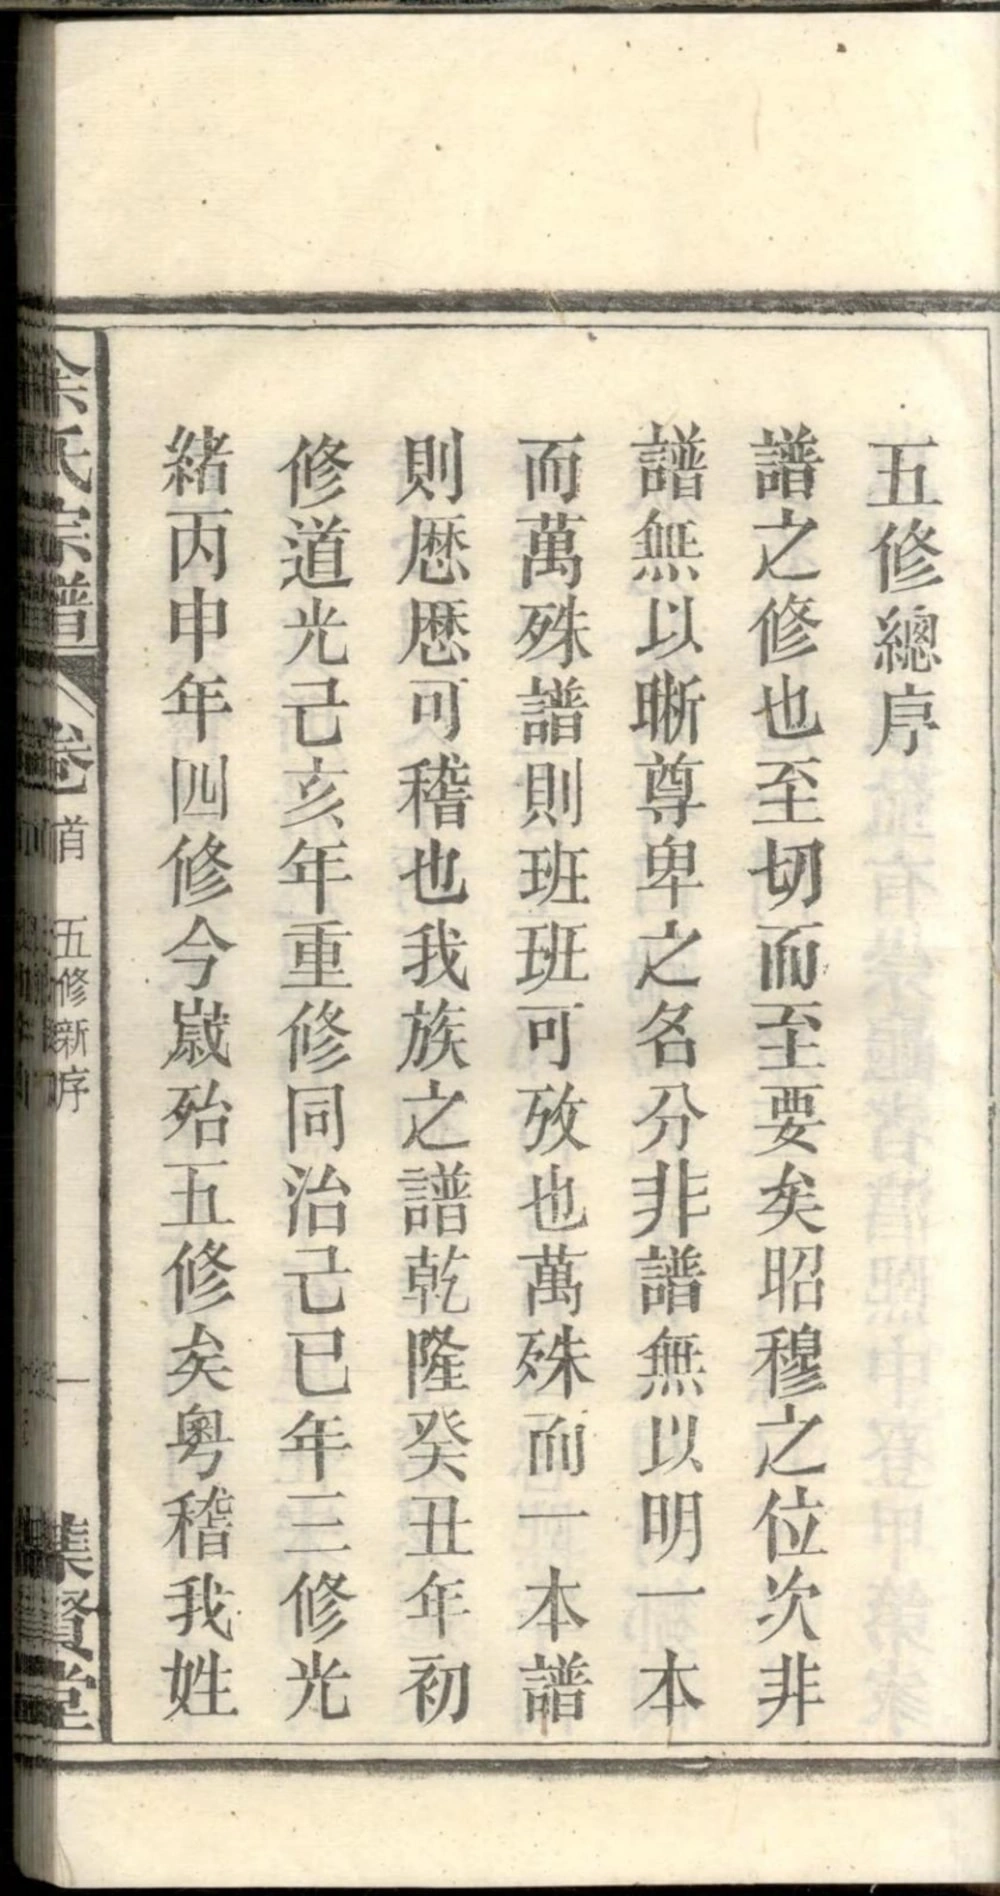 五修總序
譜之修也至切而至要矣昭穆之位次非
譜無以晰尊卑之名分非譜無以明一本
而萬殊譜則班班可攷也萬殊而一本譜
則歷歷可稽也我族之譜乾隆癸丑年初
修道光己亥年重修同治己巳年三修光
緒丙申年四修今歲殆五修矣粵稽我姓
氏宗譜 卷首 五修新序 一 集賢堂